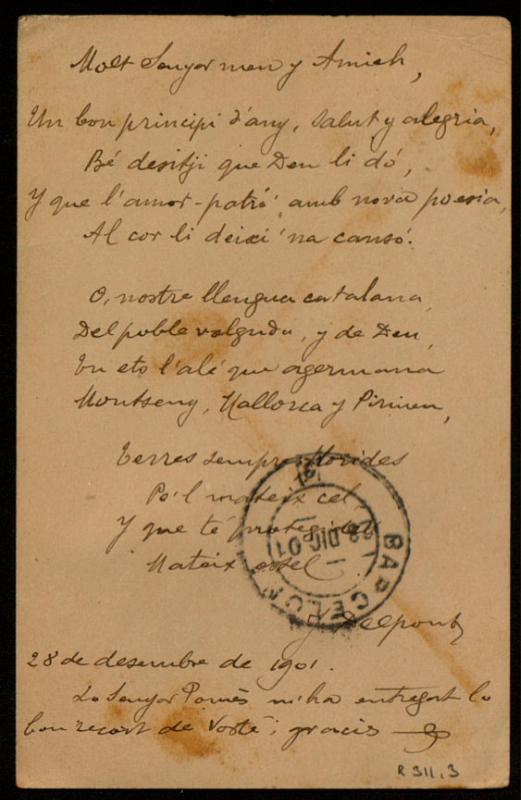 Molt Senyor meu y Amich,
Un bon principi d'any, salut y alegria,
Bé desitji que Deu li dó,
Y que l'amor-patri, amb nova poesia,
Al cor li deixi 'na cansó.
O, nostre llengua catalana,
Del poble volguda, y de Deu,
Tu ets l'alé que agermana
Montseny, Mallorca y Pirineu,
Terres sempre florides
Po'l mateix cel,
Y que té protegides
Mateix estel.
J. Delpont
28 de desembre de 1901.
Lo Senyor Pomés m'ha entregat lo
bon recort de Vosté; gracis
BARCELONA
28 DIC 01
R 311.3